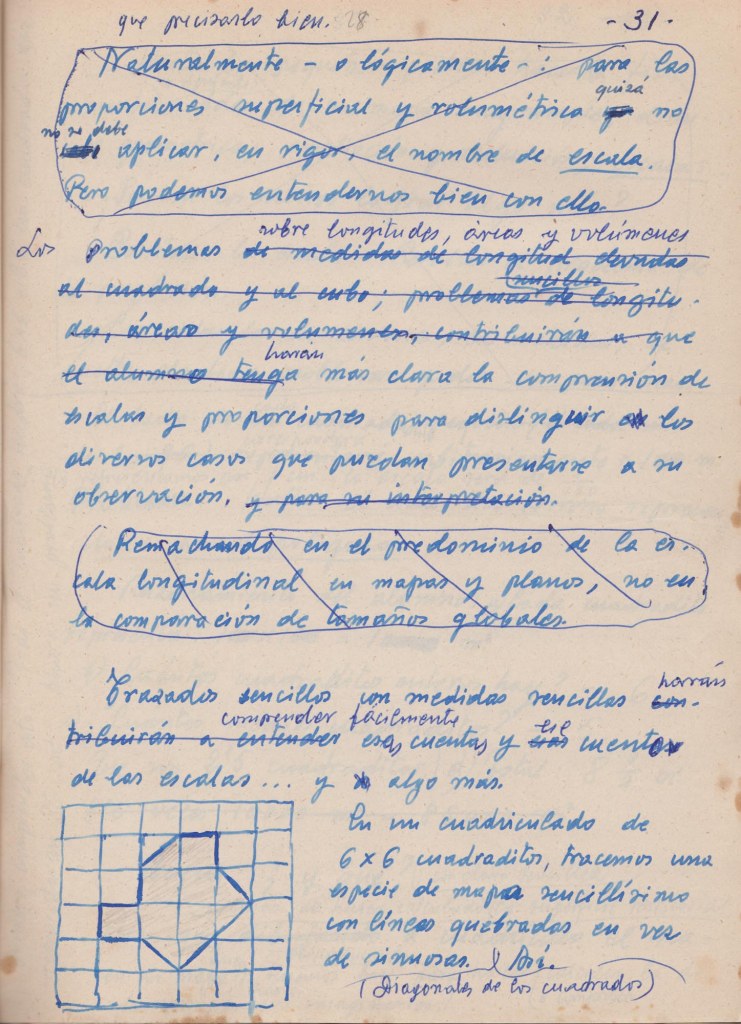 que precisarlo bien. 28 - 31 -
Naturalmente - o lógicamente - : para las
proporciones superficial y volumétrica quizá no
no se debe aplicar, en rigor, el nombre de escala.
Pero podemos entendernos bien con ello.
sobre longitudes, áreas y volúmenes
Los problemas de medidas de longitud elevadas
sencillos
al cuadrado y al cubo; problemas de longitu-
des, áreas y volumenes, contribuirán a que
harán
el alumno tenga más clara la comprensión de
escalas y proporciones para distinguir los
diversos casos que puedan presentarse a su
observación, y para su interpretación.
Remachando en el predominio de la es-
cala longitudinal en mapas y planos, no en
la comparación de tamaños globales.
harán
Trazados sencillos con medidas sencillas con-
comprender fácilmente ese
tribuirán a entender esas cuentas y esas cuento
de las escalas... y algo más.
En un cuadriculado de
6 x 6 cuadraditos, tracemos una
especie de mapa sencillísimo
con líneas quebradas en vez
de sinuosas. Así.
(Diagonales de los cuadrados)